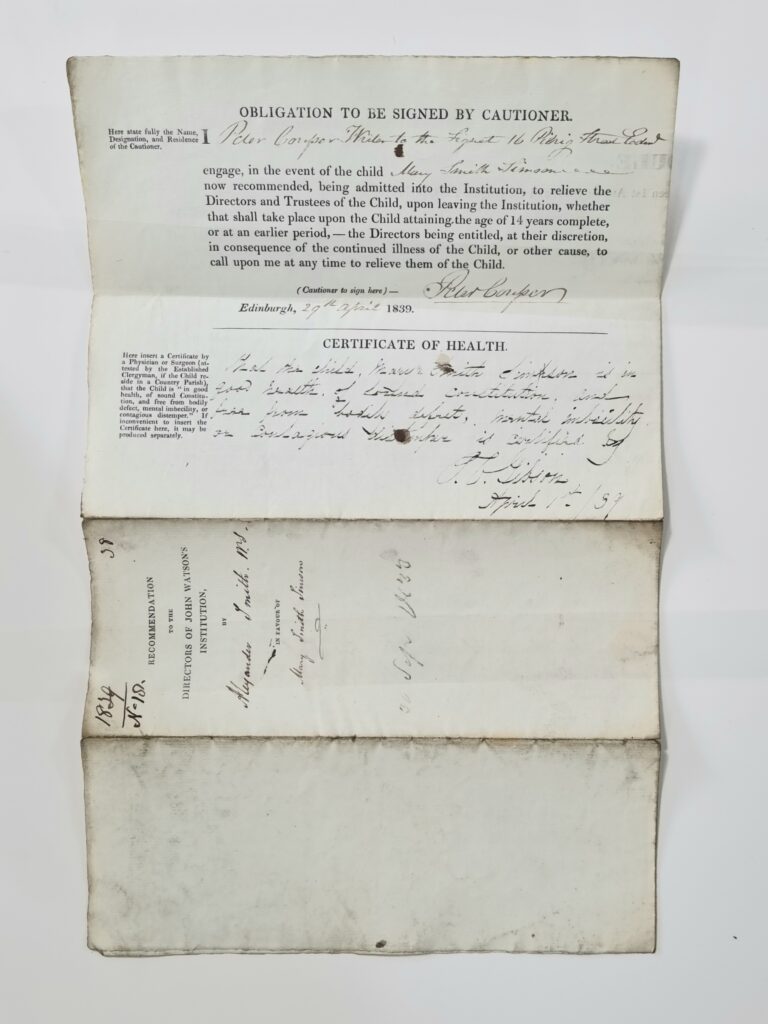 OBLIGATION TO BE SIGNED BY CAUTIONER.
Here state fully the Name,
Designation, and Residence
of the Cautioner.
I Peter Couper Writer to the Signet 16 Street
engage, in the event of the child Mary Smith Simson
now recommended, being admitted into the Institution, to relieve the
Directors and Trustees of the Child, upon leaving the Institution, whether
that shall take place upon the Child attaining the age of 14 years complete,
or at an earlier period, — the Directors being entitled, at their discretion,
in consequence of the continued illness of the Child, or other cause, to
call upon me at any time to relieve them of the Child.
(Cautioner to sign here) — Peter Couper
Edinburgh, 29th April 1839.
CERTIFICATE OF HEALTH.
Here insert a Certificate by
a Physician or Surgeon (at-
tested by the Established
Clergyman, if the Child re-
side in a Country Parish),
that the Child is "in good
health, of sound Constitu-
tion, and free from bodily
defect, mental imbecility, or
contagious distemper." If
inconvenient to insert the
Certificate here, it may be
produced separately.
That the child, Smith Simpson is in
good health, of sound constitution, and
free from bodily defect, mental imbecility
or contagious distemper is certified by
Gibson
April 1st /39
38
RECOMMENDATION
TO THE
DIRECTORS OF JOHN WATSON'S
INSTITUTION,
BY
Alexander Smith. WS.
IN FAVOUR OF
Mary Smith Simson
1839
No 18.